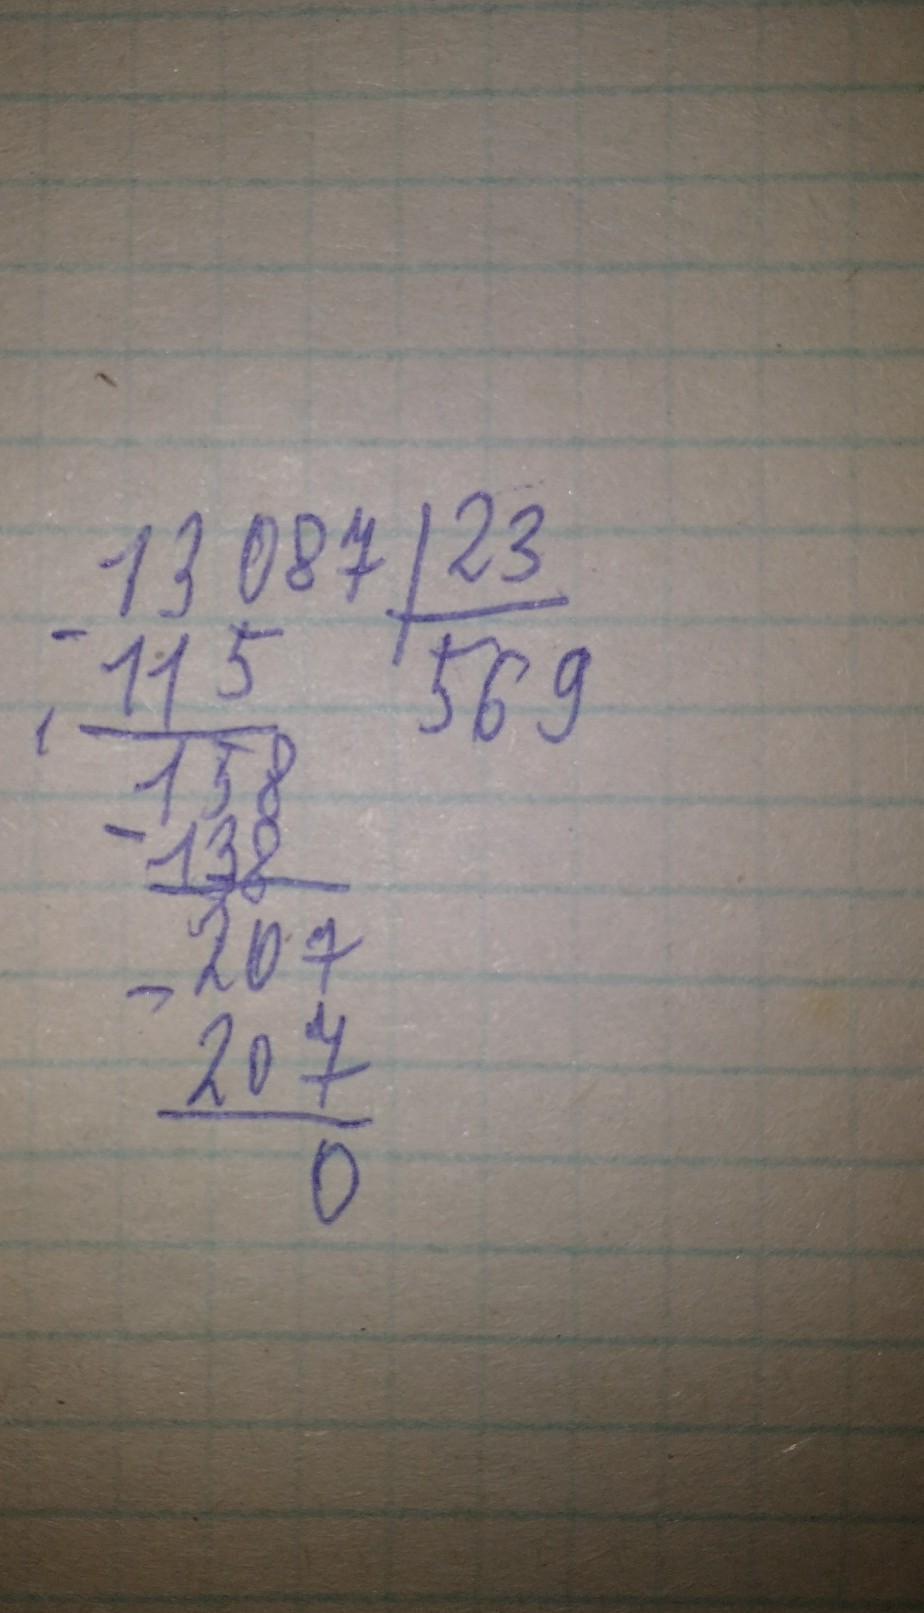 13087 | 23
- 115 569
158
- 138
207
- 207
0